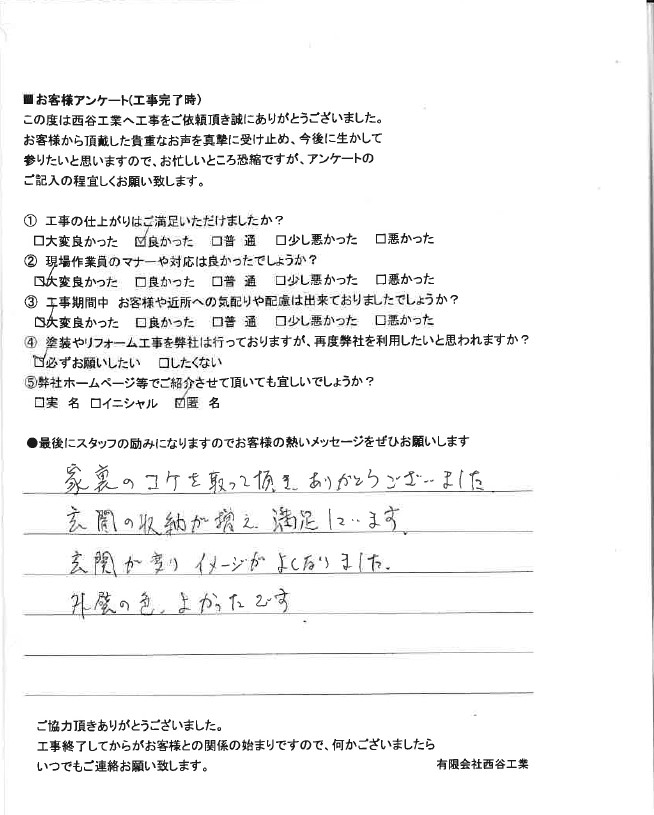 ■お客様アンケート(工事完了時)
この度は西谷工業へ工事をご依頼頂き誠にありがとうございました。
お客様から頂戴した貴重なお声を真摯に受け止め、今後に生かして
参りたいと思いますので、お忙しいところ恐縮ですが、アンケートの
ご記入の程宜しくお願い致します。
① 工事の仕上がりはご満足いただけましたか？
□大変良かった ☑良かった □普 通 □少し悪かった □悪かった
② 現場作業員のマナーや対応は良かったでしょうか？
☑大変良かった □良かった □普 通 □少し悪かった □悪かった
③ 工事期間中 お客様や近所への気配りや配慮は出来ておりましたでしょうか？
☑大変良かった □良かった □普 通 □少し悪かった □悪かった
④ 塗装やリフォーム工事を弊社は行っておりますが、再度弊社を利用したいと思われますか？
☑必ずお願いしたい □したくない
⑤弊社ホームページ等でご紹介させて頂いても宜しいでしょうか？
□実 名 □イニシャル ☑匿 名
●最後にスタッフの励みになりますのでお客様の熱いメッセージをぜひお願いします
家裏のコケを取って頂き、ありがとうございました。
玄関の収納が増え、満足しています。
玄関が変りイメージがよくなりました。
外壁の色、よかったです
ご協力頂きありがとうございました。
工事終了してからがお客様との関係の始まりですので、何かございましたら
いつでもご連絡お願い致します。
有限会社西谷工業